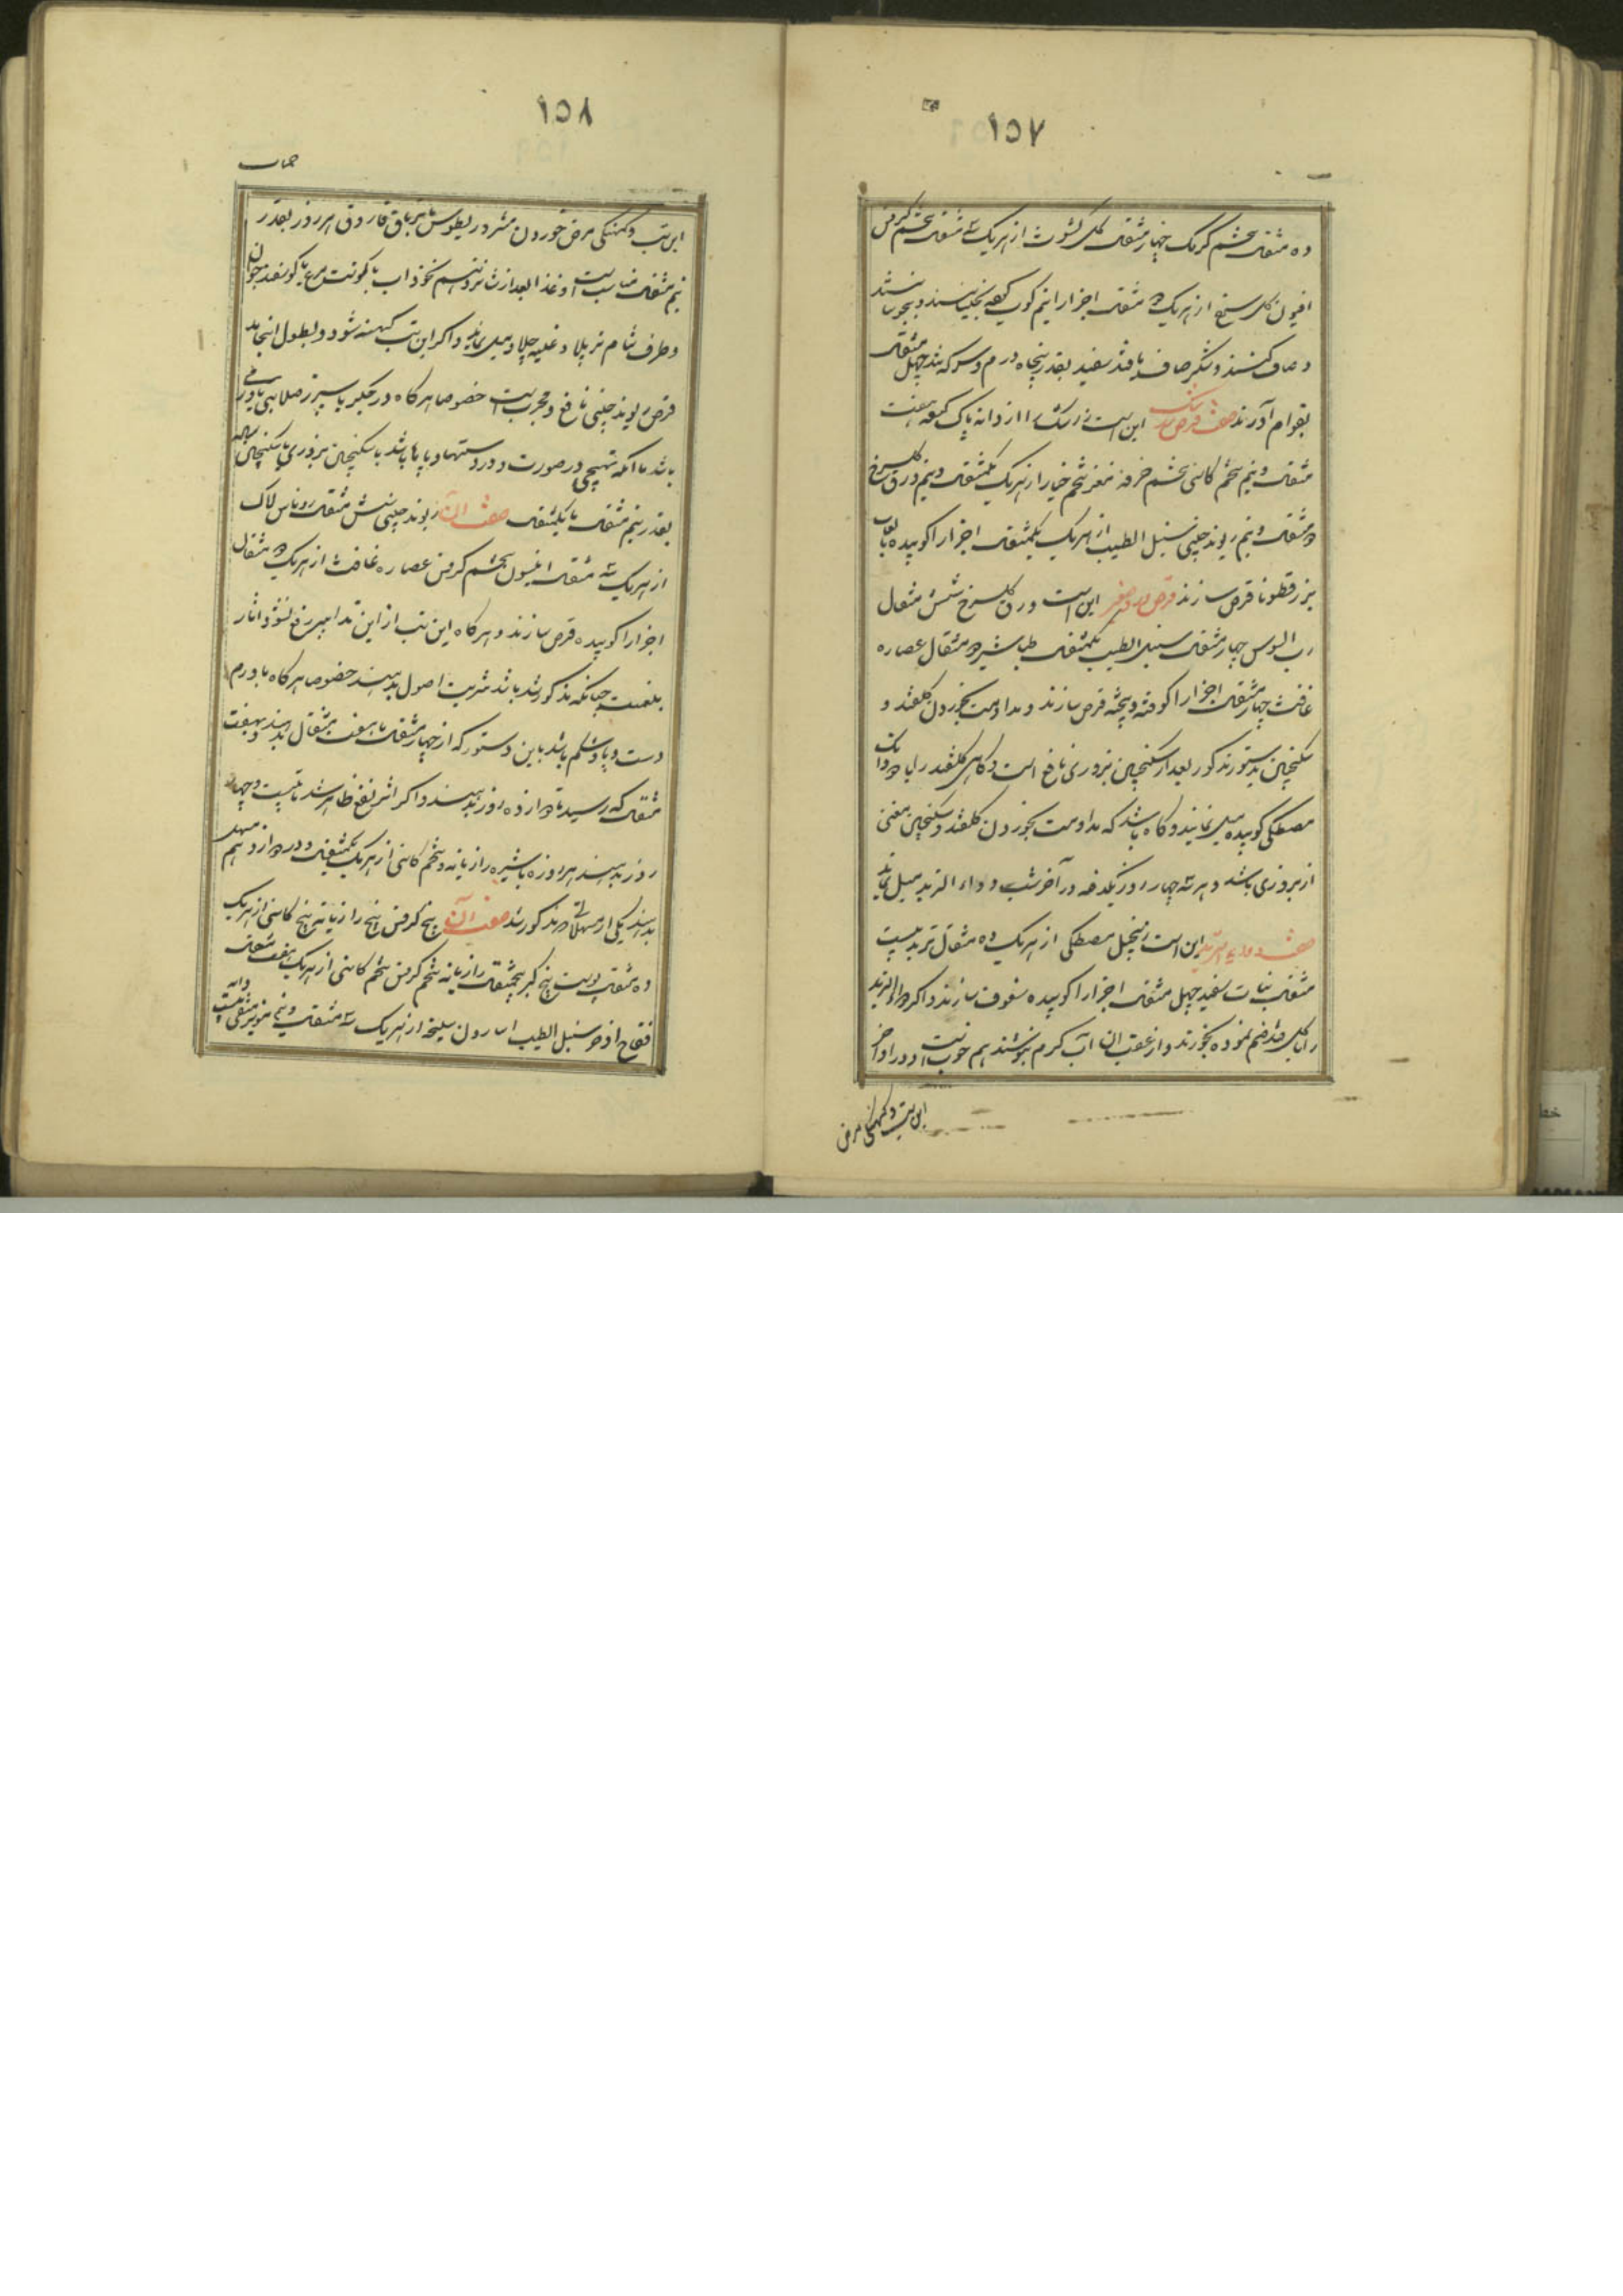 ۱۵۷
ده مثقال تخم کرنک چهار مثقال گل کشوث از هریک سه مثقال تخم کرفس
افیون گل سرخ از هریک دو مثقال اجزا را نیم کوب کرده بخیسانند و بجوشانند
و صاف کنند و شکر صاف یا قند سفید بقدر پنجاه درم و سرکه تند چهل مثقال
بقوام آورند صفت قرص زرشک این است زرشک از دانه پاک کرده هفت
مثقال و نیم تخم کاسنی تخم خرفه مغز تخم خیار از هریک یکمثقال و نیم ورق گلسرخ
دو مثقال و نیم ریوند چینی سنبل الطیب از هریک یکمثقال اجزا را کوبیده بلعاب
بزرقطونا قرص سازند قرص ورد صغیر این است ورق گلسرخ شش مثقال
رب السوس چهار مثقال سنبل الطیب یکمثقال طباشیر دو مثقال عصاره
غافث چهار مثقال اجزا را کوفته و بیخته قرص سازند و مداومت بخوردن گلقند و
سکنجبین بدستور مذکور بعد از سکنجبین بزوری نافع است و گاهی گلقند را با دو دانک
مصطکی کوبیده میل نمایند و گاه باشد که مداومت بخوردن گلقند و سکنجبین مغنی
از بزوری باشد و هر سه چهار روز یکدفعه در آخر شب دواء التربد میل نمایند
صفت دواء التربد این است زنجبیل مصطکی از هریک ده مثقال تربد بیست
مثقال نبات سفید چهل مثقال اجزا را کوبیده سفوف سازند و اگر دواء التربد
را با گلقند ضم نموده بخورند و از عقب آن آب گرم بنوشند هم خوبست و در اواخر
این تب و کهنگی مرض
۱۵۸
حمیات
این تب و کهنگی مرض خوردن مثرودیطوس یا تریاق فاروق هر روز بقدر
نیم مثقال مناسب است و غذا بعد از شانزدهم نخوداب با گوشت مرغ یا گوسفند جوان
و طرف شام نرم پلاو و غلیه چلاو میل نمایند و اگر این تب کهنه شود و بطول انجامد
قرص ریوند چینی نافع و مجرب است خصوصا هرگاه در جگر یا سپرز صلابتی یا ورمی
باشد یا آنکه تهبجی در صورت و در دستها و پاها باشد با سکنجبین بزوری یا سکنجبین ساده
بقدر نیم مثقال تا یکمثقال صفت آن ریوند چینی شش مثقال روناس لاک
از هریک سه مثقال انیسون تخم کرفس عصاره غافث از هریک دو مثقال
اجزا را کوبیده قرص سازند و هرگاه این تب از این تدابیر رفع نشود و آثار
بلغمیت چنانکه مذکور شد باشد شربت اصول بدهند خصوصا هرگاه با ورم
دست و پا و شکم باشد باین دستور که از چهار مثقال تا هفت مثقال بدهند و بهفت
مثقال که رسید تا دوازده روز بدهند و اگر اثر نفع ظاهر شد تا بیست و چهار
روز بدهند هر روزه با شیره رازیانه و تخم کاسنی از هریک یکمثقال و در دوازدهم مسهل
بدهند یکی از مسهلاتی که مذکور شد صفت آن بیخ کرفس بیخ رازیانه بیخ کاسنی از هریک
ده مثقال پوست بیخ کبر پنجمثقال رازیانه تخم کرفس تخم کاسنی از هریک هفت مثقال
فقاح اذخر سنبل الطیب اسارون سلیخه از هریک سه مثقال و نیم مویز منقی بیست دانه